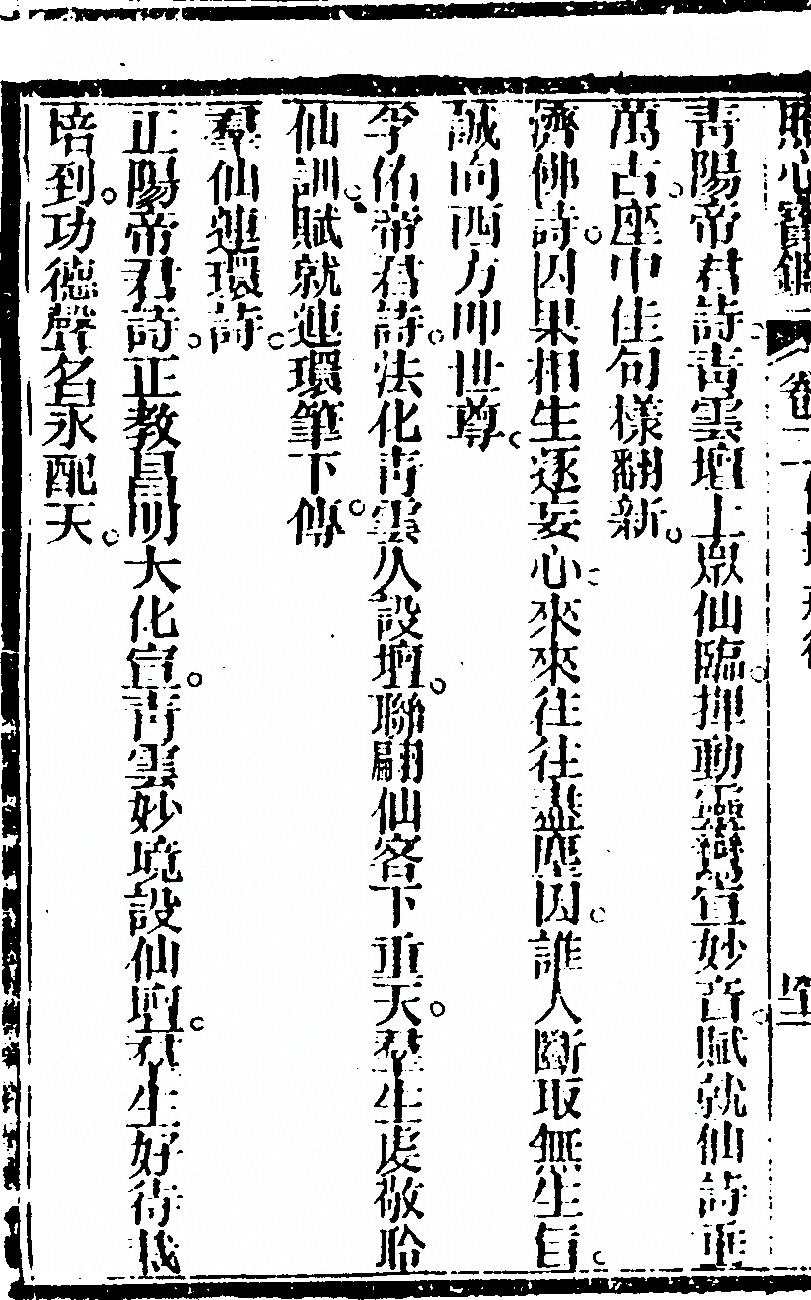 照心寶鑑 卷二
青陽帝君詩青雲壇上眾仙臨揮動靈鸞宣妙音賦就仙詩垂
萬古座中佳句樣翻新
濟佛詩因果相生逐妄心來來往往盡塵因誰人斷取無生旨
誠向西方叩世尊
孚佑帝君詩法化青雲入設壇聯翩仙客下重天羣生虔敬聆
仙訓賦就連環筆下傳
羣仙連環詩
正陽帝君詩正教昌明大化宣青雲妙境設仙壇羣生好待栽
培到功德聲名永配天